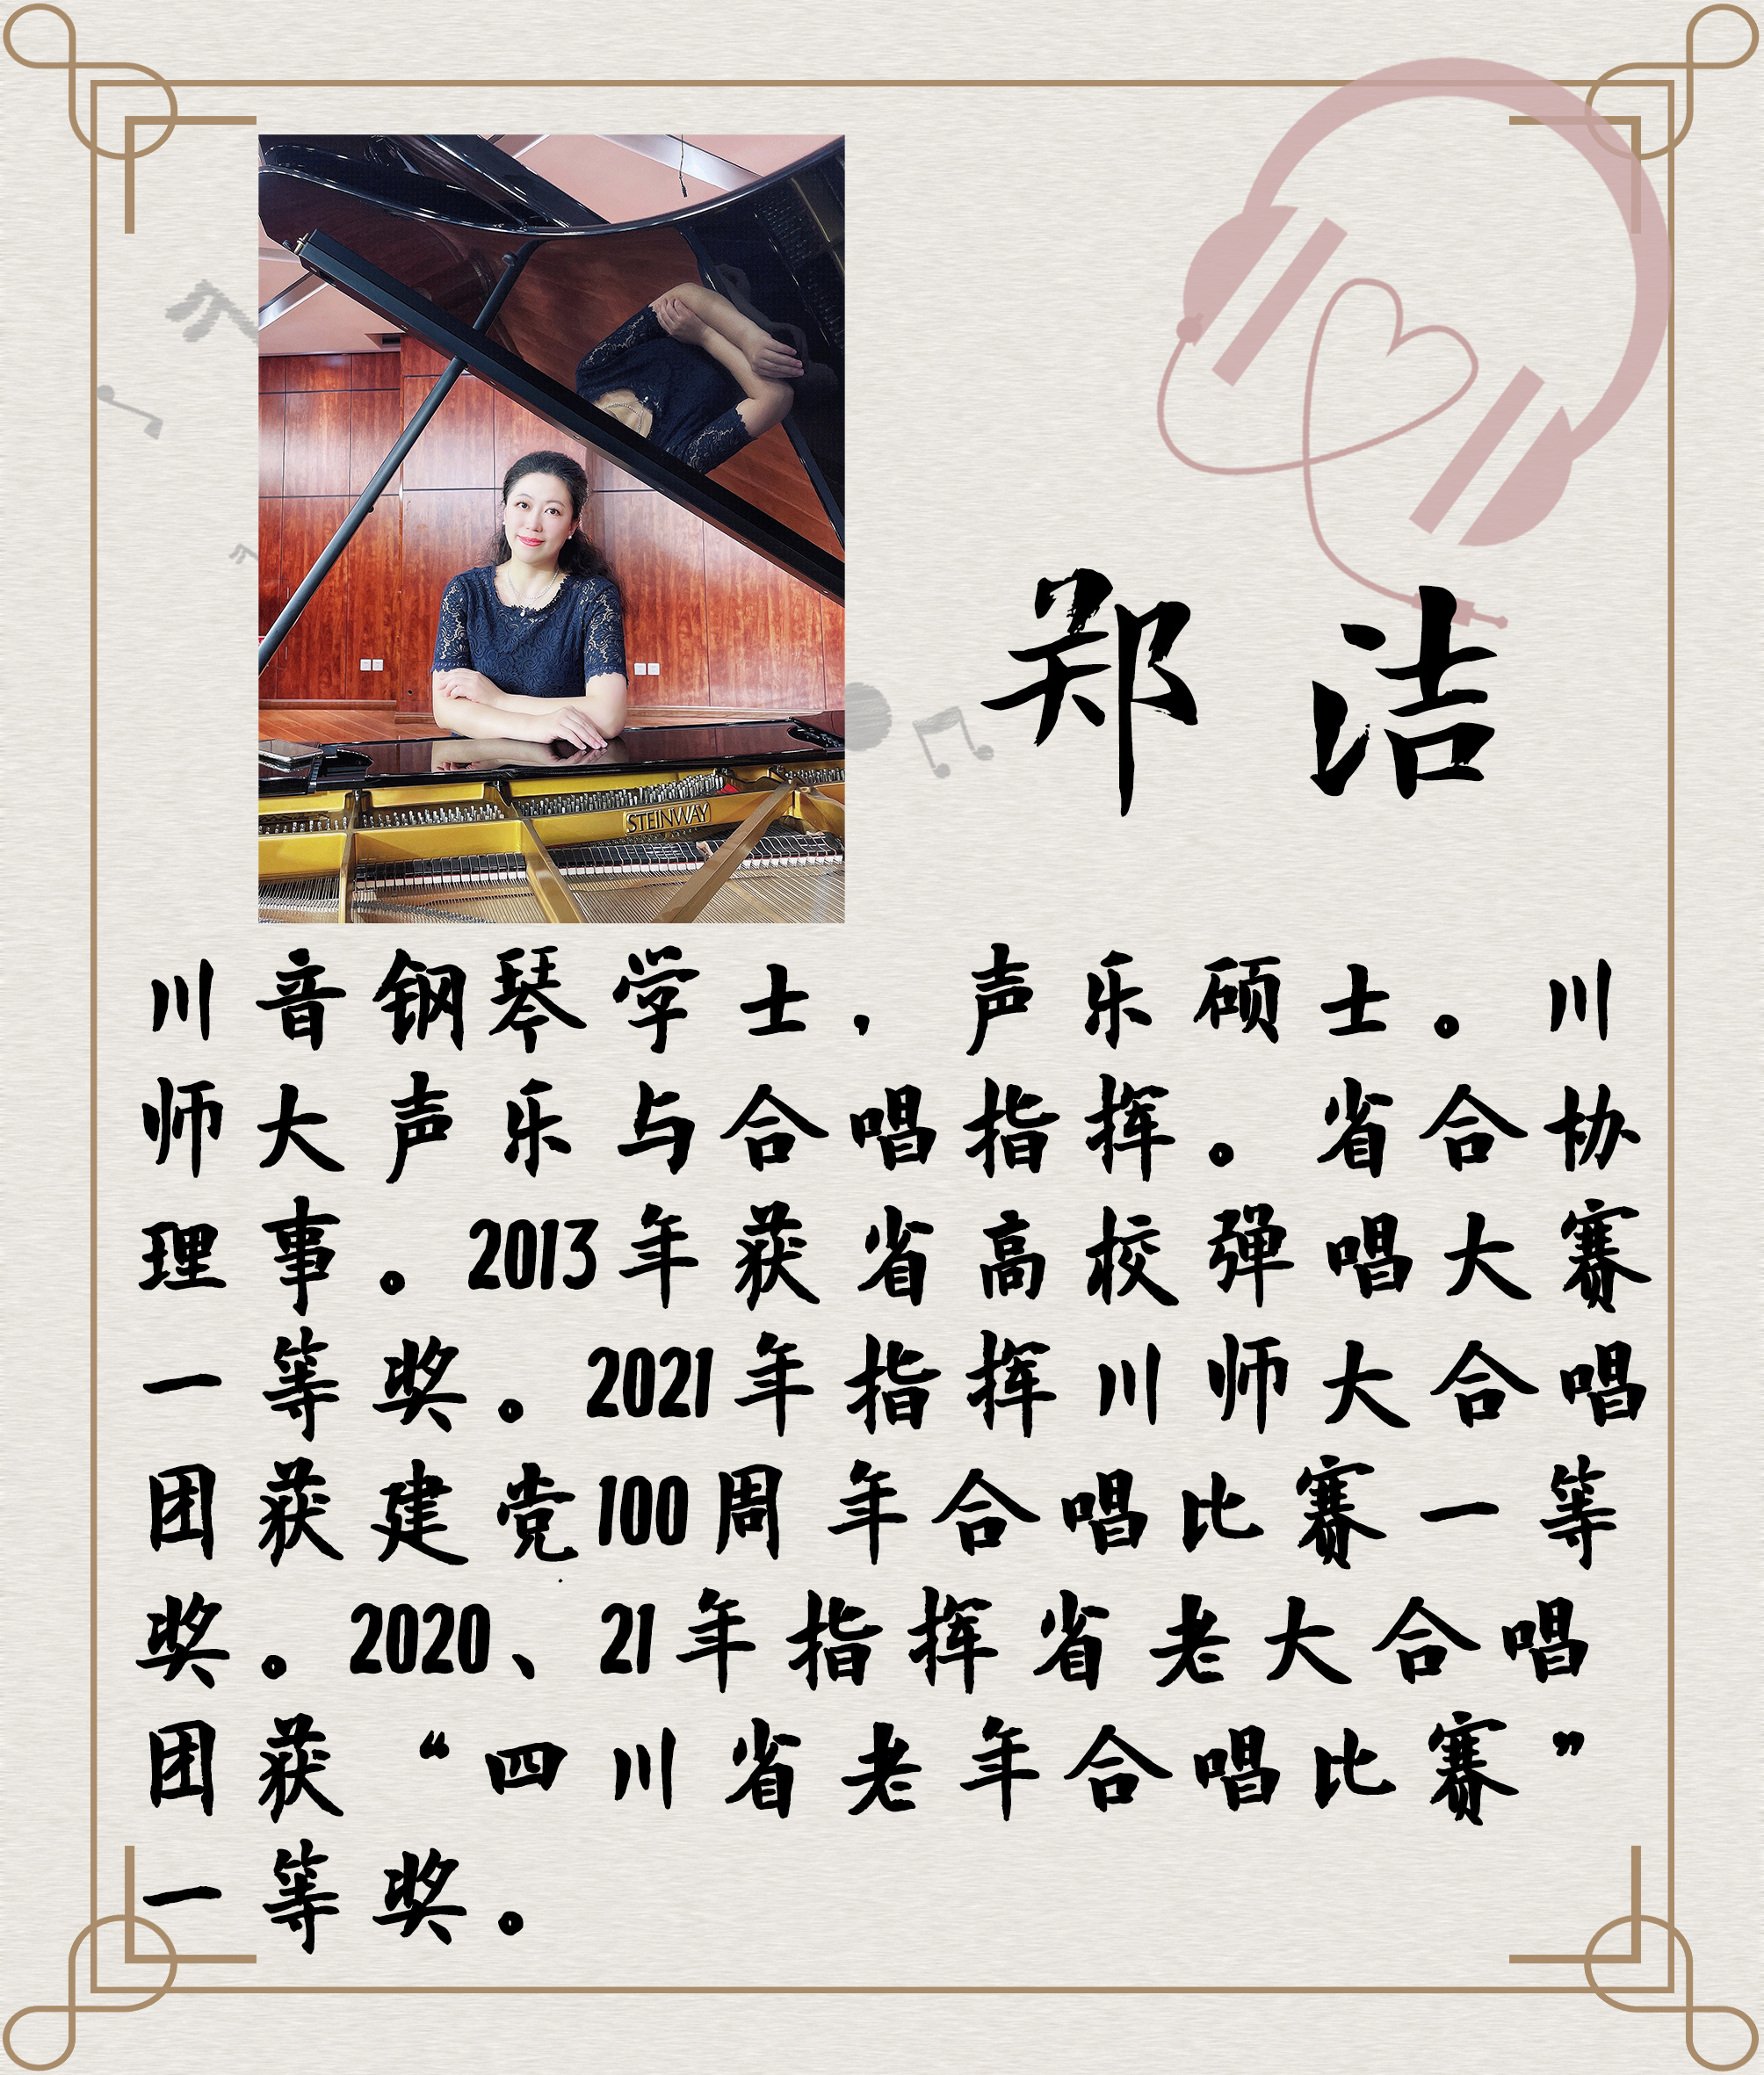 STEINWAY
郑洁
川音钢琴学士，声乐硕士。川
师大声乐与合唱指挥。省合协
理事。2013年获省高校弹唱大赛
一等奖。2021年指挥川师大合唱
团获建党100周年合唱比赛一等
奖。2020、21年指挥省老大合唱
团获“四川省老年合唱比赛”
一等奖。